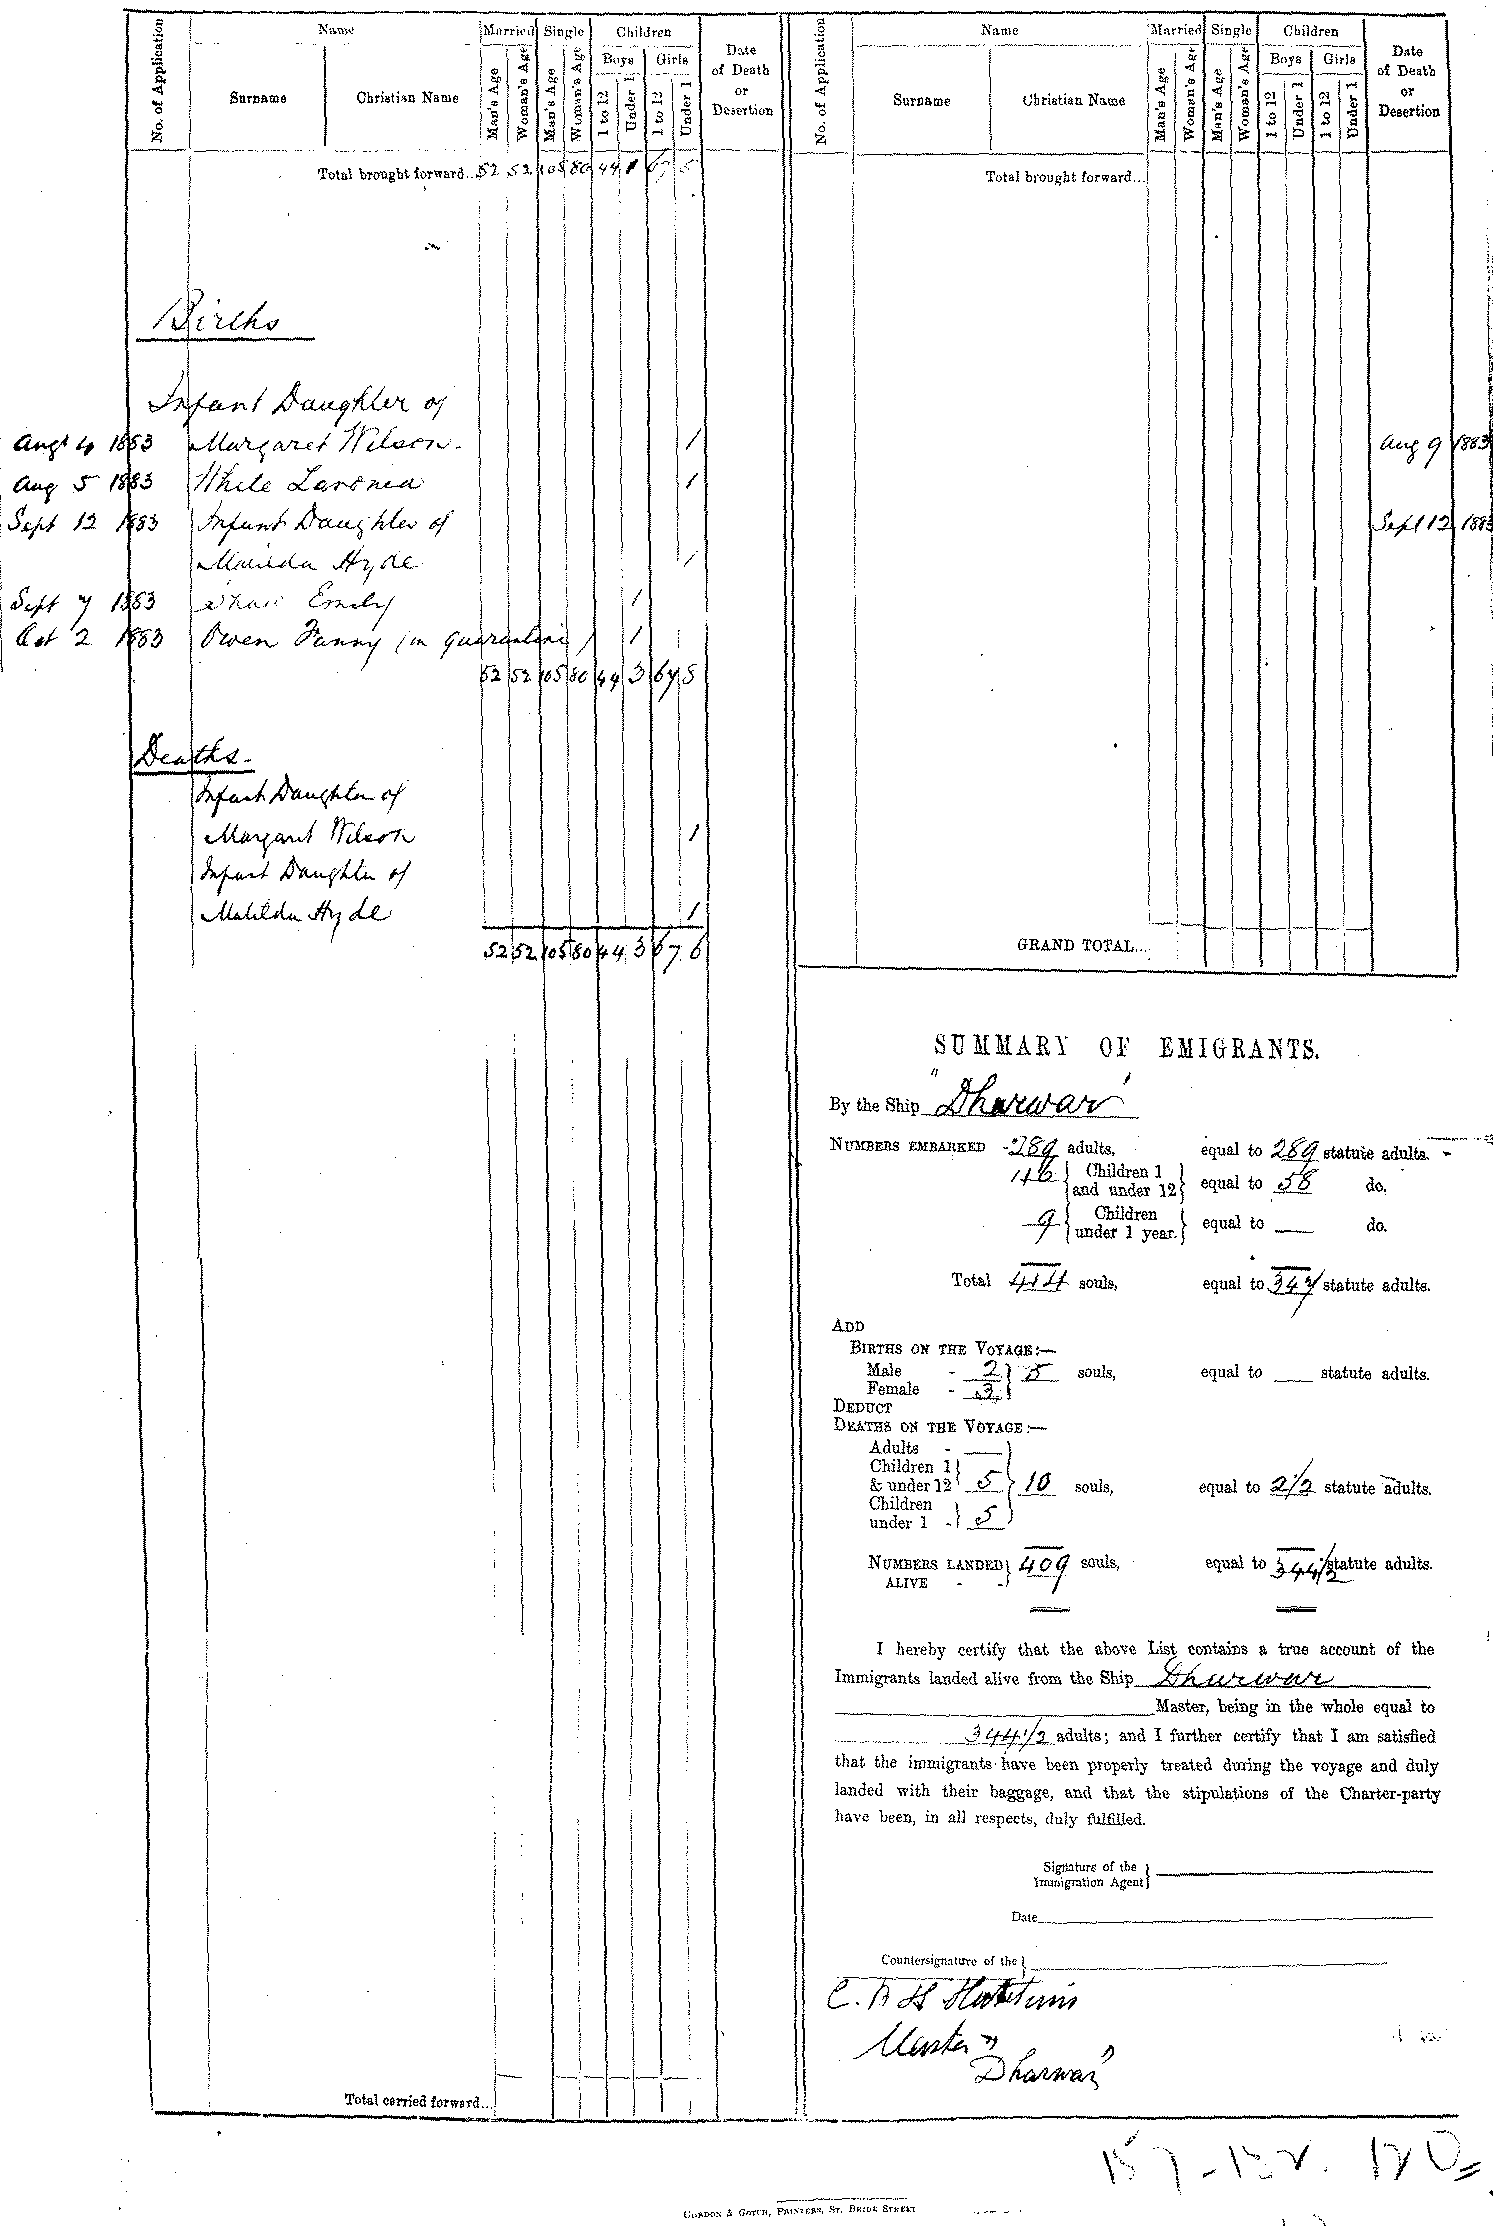 No. of Application
Name
Surname
Christian Name
Married
Man's Age
Woman's Age
Single
Man's Age
Woman's Age
Children
Boys
1 to 12
Under 1
Girls
1 to 12
Under 1
Date
of Death
or
Desertion
Total brought forward... 52 52 105 80 44 1 67 5
Births
Infant Daughter of
Augt 4 1883 Margaret Wilson - 1
Aug 5 1883 White Lavonia 1
Sept 12 1883 Infant Daughter of
Matilda Hyde 1
Sept 7 1883 Shaw Emily 1
Oct 2 1883 Owen Fanny (in quarantine) 1
52 52 105 80 44 3 67 8
Deaths -
Infant Daughter of
Margaret Wilson 1
Infant Daughter of
Matilda Hyde 1
52 52 105 80 44 3 67 6
Total carried forward...
No. of Application
Name
Surname
Christian Name
Married
Man's Age
Woman's Age
Single
Man's Age
Woman's Age
Children
Boys
1 to 12
Under 1
Girls
1 to 12
Under 1
Date
of Death
or
Desertion
Total brought forward...
Aug 9 1883
Sept 12 1883
GRAND TOTAL...
SUMMARY OF EMIGRANTS.
By the Ship "Dharwar"
NUMBERS EMBARKED - 289 adults, equal to 289 statute adults. -
116 { Children 1 and under 12 } equal to 58 do.
9 { Children under 1 year. } equal to — do.
Total 414 souls, equal to 347 statute adults.
ADD
BIRTHS ON THE VOYAGE:—
Male - 2 } 5 souls, equal to statute adults.
Female - 3 }
DEDUCT
DEATHS ON THE VOYAGE:—
Adults - —
Children 1
& under 12 } 5 } 10 souls, equal to 2 1/2 statute adults.
Children
under 1 - } 5
NUMBERS LANDED ALIVE - - } 409 souls, equal to 344 1/2 statute adults.
I hereby certify that the above List contains a true account of the
Immigrants landed alive from the Ship Dharwar
Master, being in the whole equal to
344 1/2 adults; and I further certify that I am satisfied
that the immigrants have been properly treated during the voyage and duly
landed with their baggage, and that the stipulations of the Charter-party
have been, in all respects, duly fulfilled.
Signature of the
Immigration Agent
Date
Countersignature of the
Master "
Dharwar"
GORDON & GOTCH, PRINTERS, ST. BRIDE STREET